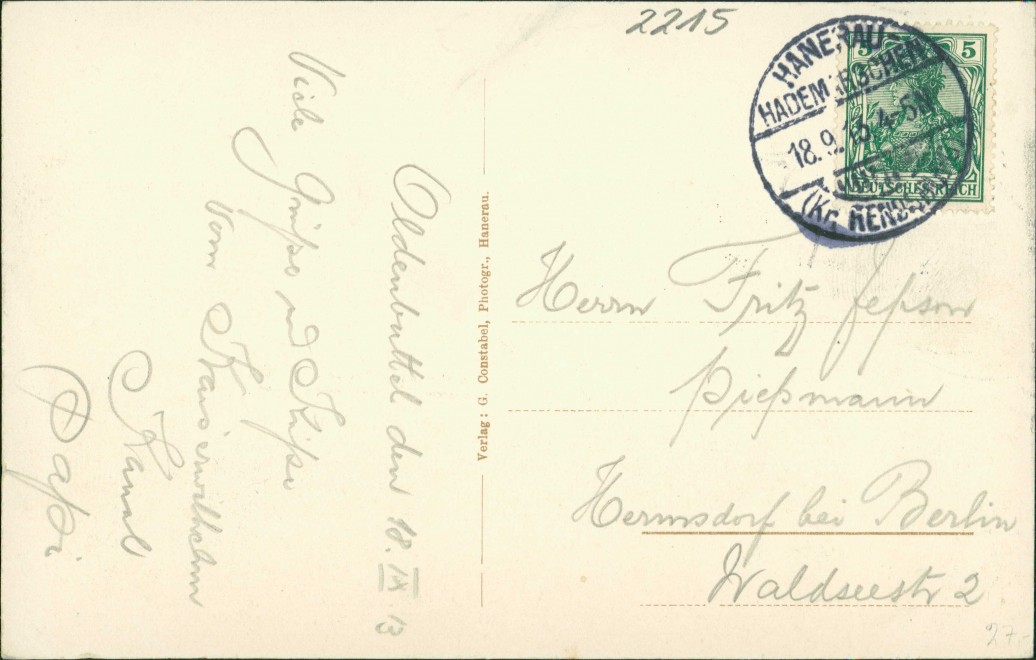 2215
HANERAU
HADEMARSCHEN
18.9.13 4-5N
(Kr. RENDSBURG)
5 5
DEUTSCHES REICH
Oldenbüttel den 18. IX 13
Viele Grüsse und Küsse
vom Kaiserwilhelm
Kanal
Papi
Verlag: G. Constabel, Photogr., Hanerau.
Herrn Fritz Jepson
Hermsdorf bei Berlin
Waldseestr 2
27.-